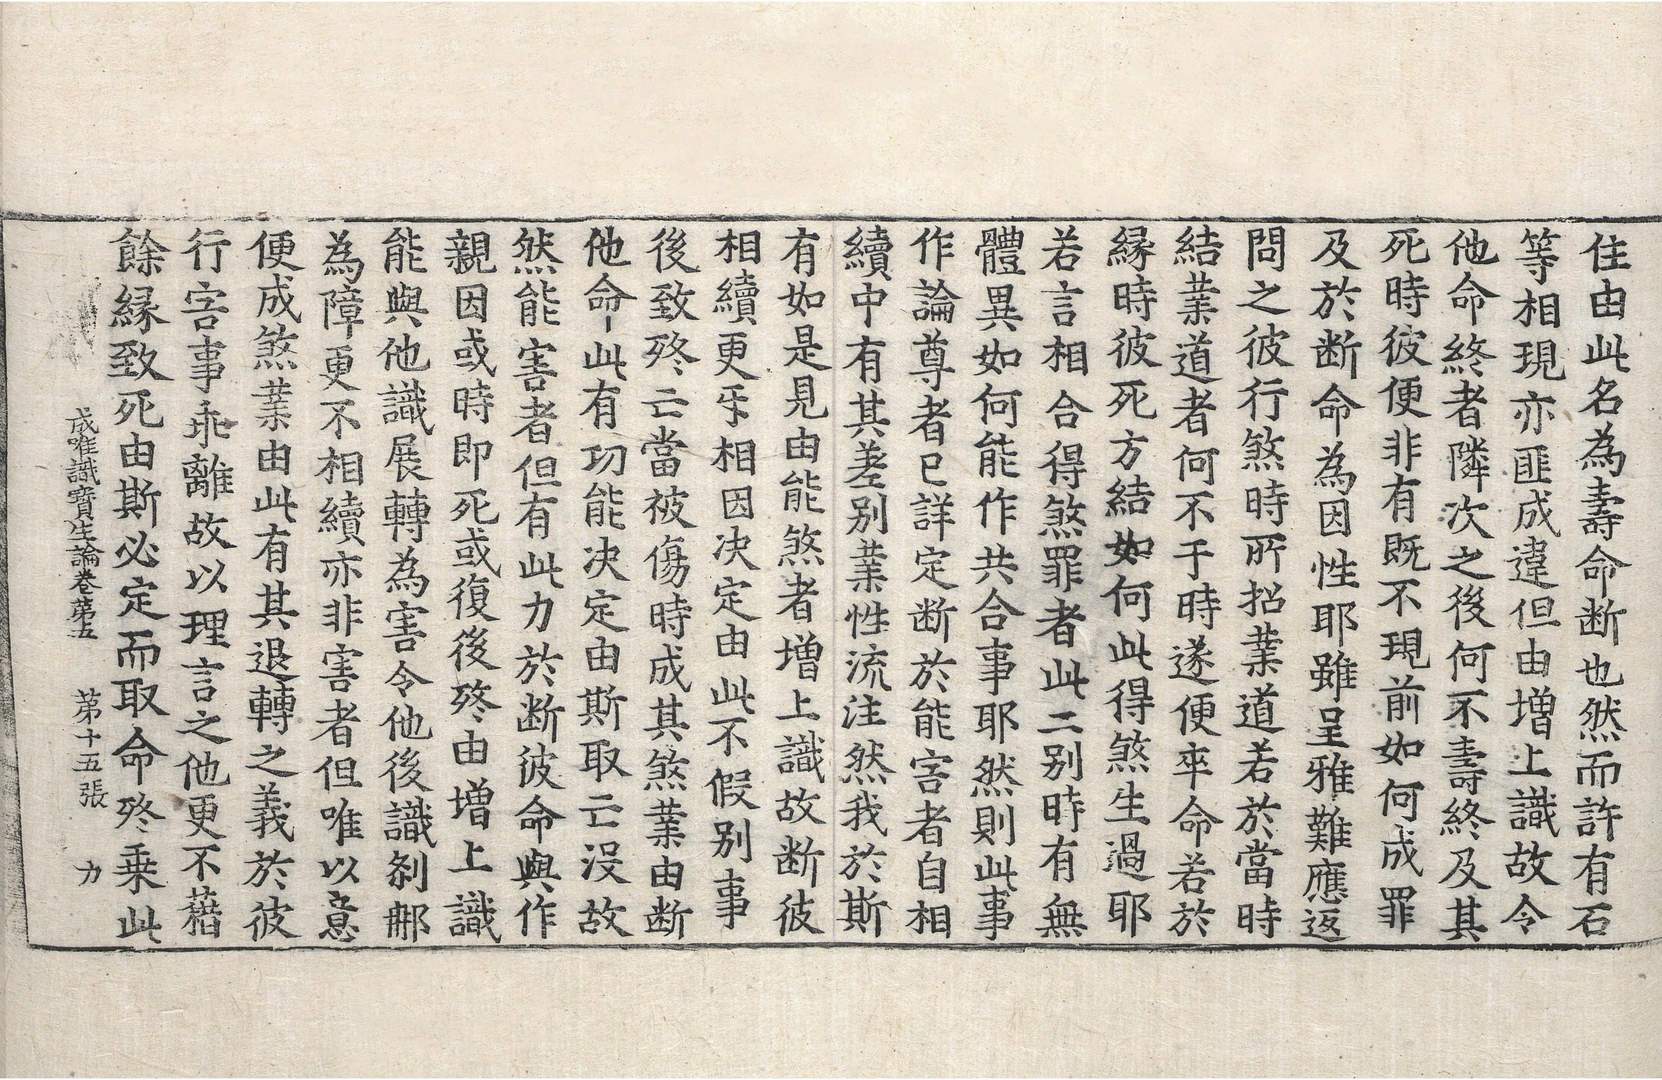 住由此名為壽命断也然而許有石
等相現亦匪成違但由増上識故令
他命終者隣次之後何不壽終及其
死時彼便非有既不現前如何成罪
及於断命為因性耶雖呈雅難應返
問之彼行煞時所招業道若於當時
結業道者何不于時遂便卒命若於
縁時彼死方結如何此得煞生過耶
若言相合得煞罪者此二別時有無
體異如何能作共合事耶然則此事
作論尊者已詳定断於能害者自相
續中有其差別業性流注然我於斯
有如是見由能煞者増上識故断彼
相續更㸦相因决定由此不假別事
後致終亡當被傷時成其煞業由断
他命此有功能决定由斯取亡没故
然能害者但有此力於断彼命與作
親因或時即死或復後終由増上識
能與他識展轉為害令他後識刹那
為障更不相續亦非害者但唯以意
便成煞業由此有其退轉之義於彼
行害事乖離故以理言之他更不藉
餘縁致死由斯必定而取命終乗此
成唯識寶生論卷第五　第十五張　力